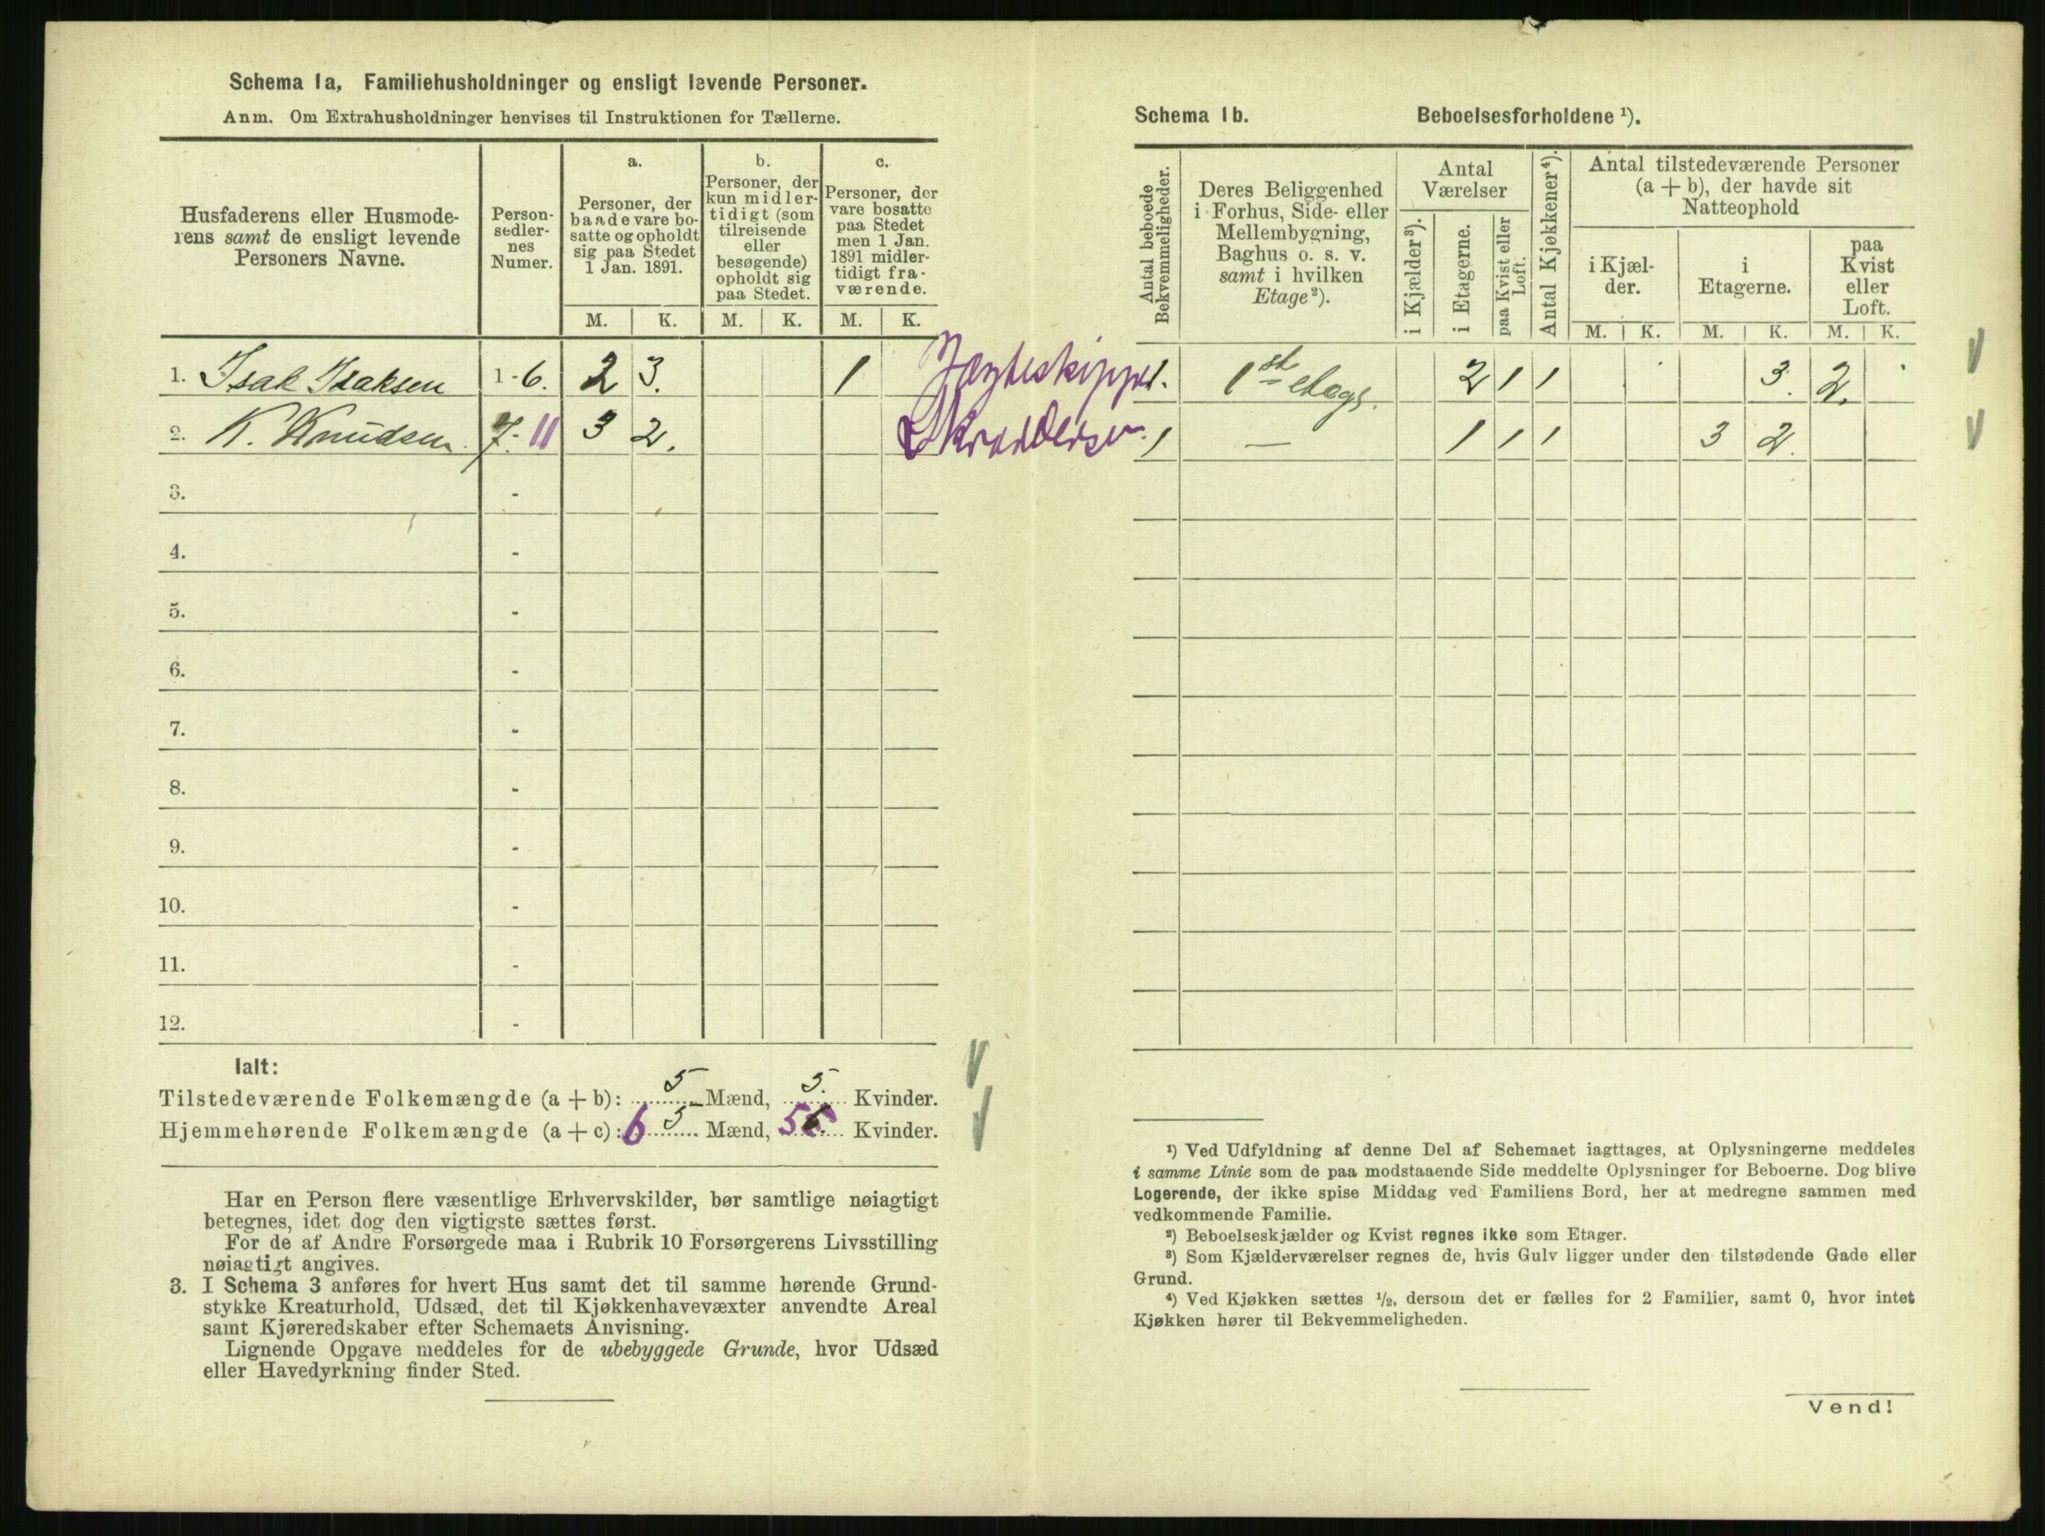 Schema 1a, Familiehusholdninger og ensligt levende Personer.
Anm. Om Extrahusholdninger henvises til Instruktionen for Tællerne.
Husfaderens eller Husmode-
rens samt de ensligt levende
Personers Navne.
Person-
sedler-
nes
Numer.
a.
Personer, der
baade vare bo-
satte og opholdt
sig paa Stedet
1 Jan. 1891.
b.
Personer, der
kun midler-
tidigt (som
tilreisende
eller
besøgende)
opholdt sig
paa Stedet.
c.
Personer, der
vare bosatte
paa Stedet
men 1 Jan.
1891 midler-
tidigt fra-
værende.
M. K. M. K. M. K.
1. Isak Isaksen 1-6. 2 3. 1 Jægteskipper
2. K. Knudsen 7-11 3 2. Skræddersv.
3. -
4. -
5. -
6. -
7. -
8. -
9. -
10. -
11. -
12. -
Ialt:
Tilstedeværende Folkemængde (a + b): 5 Mænd, 5. Kvinder.
Hjemmehørende Folkemængde (a + c): 6 5 Mænd, 5 Kvinder.
Har en Person flere væsentlige Erhvervskilder, bør samtlige nøiagtigt
betegnes, idet dog den vigtigste sættes først.
For de af Andre Forsørgede maa i Rubrik 10 Forsørgerens Livsstilling
nøiagtigt angives.
3. I Schema 3 anføres for hvert Hus samt det til samme hørende Grund-
stykke Kreaturhold, Udsæd, det til Kjøkkenhavevæxter anvendte Areal
samt Kjøreredskaber efter Schemaets Anvisning.
Lignende Opgave meddeles for de ubebyggede Grunde, hvor Udsæd
eller Havedyrkning finder Sted.
Schema 1b. Beboelsesforholdene ¹).
Antal beboede
Bekvemmeligheder.
Deres Beliggenhed
i Forhus, Side- eller
Mellembygning,
Baghus o. s. v.
samt i hvilken
Etage ²).
Antal
Værelser
i Kjælder ³).
i Etagerne.
paa Kvist eller
Loft.
Antal Kjøkkener ⁴).
Antal tilstedeværende Personer
(a + b), der havde sit
Natteophold
i Kjæl-
der.
i
Etagerne.
paa
Kvist
eller
Loft.
M. K. M. K. M. K.
1. 1st etage. 2 1 1 3. 2.
1 — 1 1 1 3 2.
¹) Ved Udfyldning af denne Del af Schemaet iagttages, at Oplysningerne meddeles
i samme Linie som de paa modstaaende Side meddelte Oplysninger for Beboerne. Dog blive
Logerende, der ikke spise Middag ved Familiens Bord, her at medregne sammen med
vedkommende Familie.
²) Beboelseskjælder og Kvist regnes ikke som Etager.
³) Som Kjælderværelser regnes de, hvis Gulv ligger under den tilstødende Gade eller
Grund.
⁴) Ved Kjøkken sættes ½, dersom det er fælles for 2 Familier, samt 0, hvor intet
Kjøkken hører til Bekvemmeligheden.
Vend!